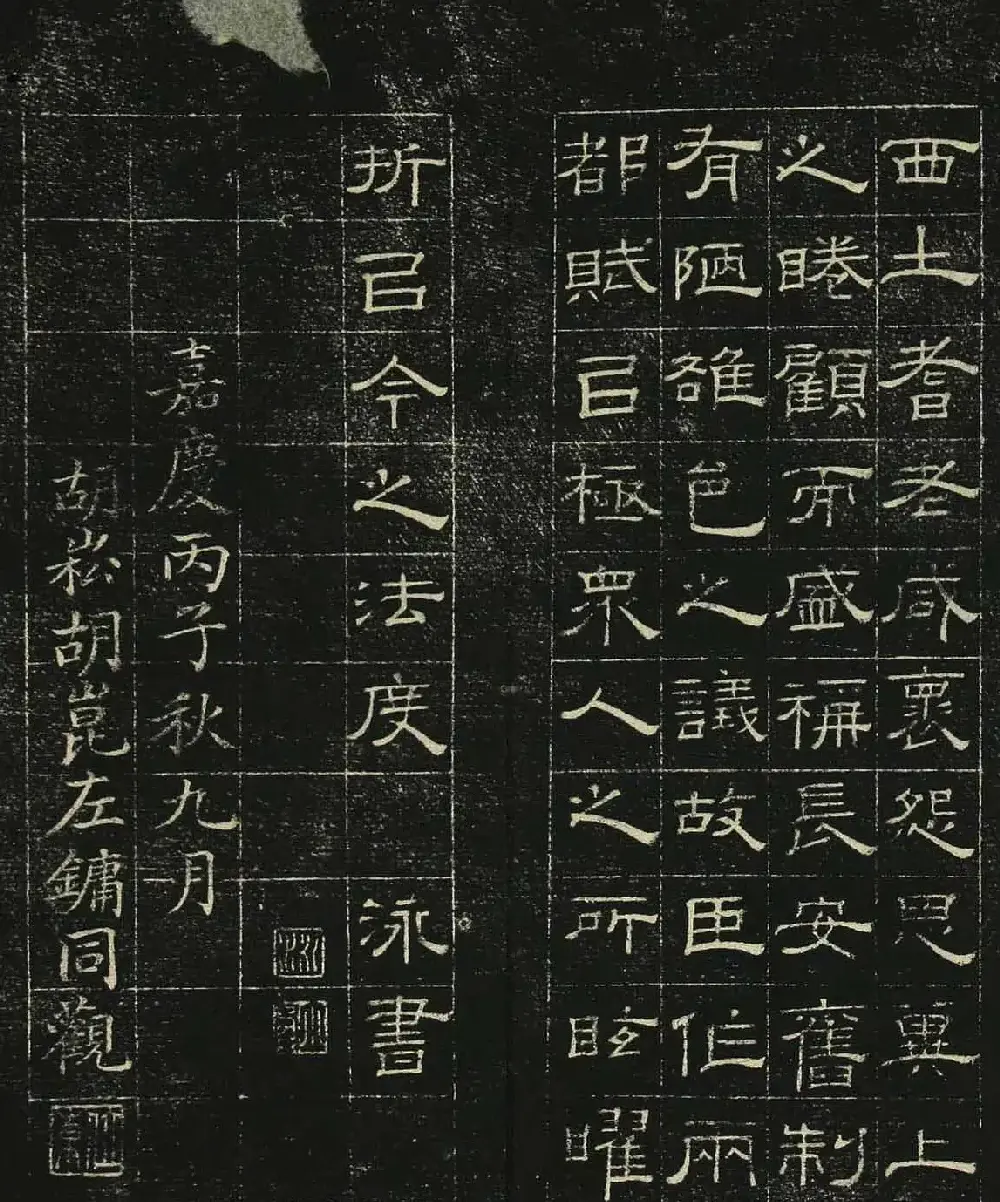 西土耆老咸褱怨思冀上
之睠顧而盛稱長安舊制
有陋雒邑之議故臣作兩
都賦㠯極眾人之所眩曜
折㠯今之法度 泳書
嘉慶丙子秋九月
胡崧胡崑左鏞同觀